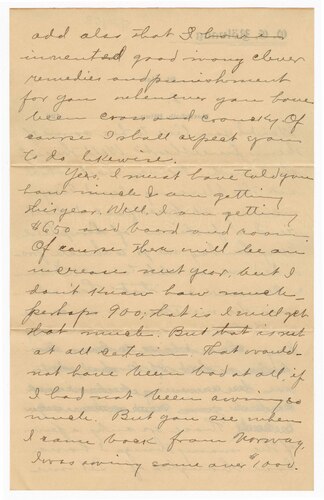 add also that I have
invented good many clever
remedies and punishment
for you whenever you have
been cross and cranky. Of
course I shall expect you
to do likewise.
Yes, I must have told you
how much I am getting
this year. Well. I am getting
$650 and board and room
Of course there will be an
increase next year, but I
don't know how much—
perhaps 900; that is I will get
that much. But that is not
at all certain. That would-
not have been bad at all if
I had not been owing so
much. But you see when
I came back from Norway,
I was owing some over $1000.